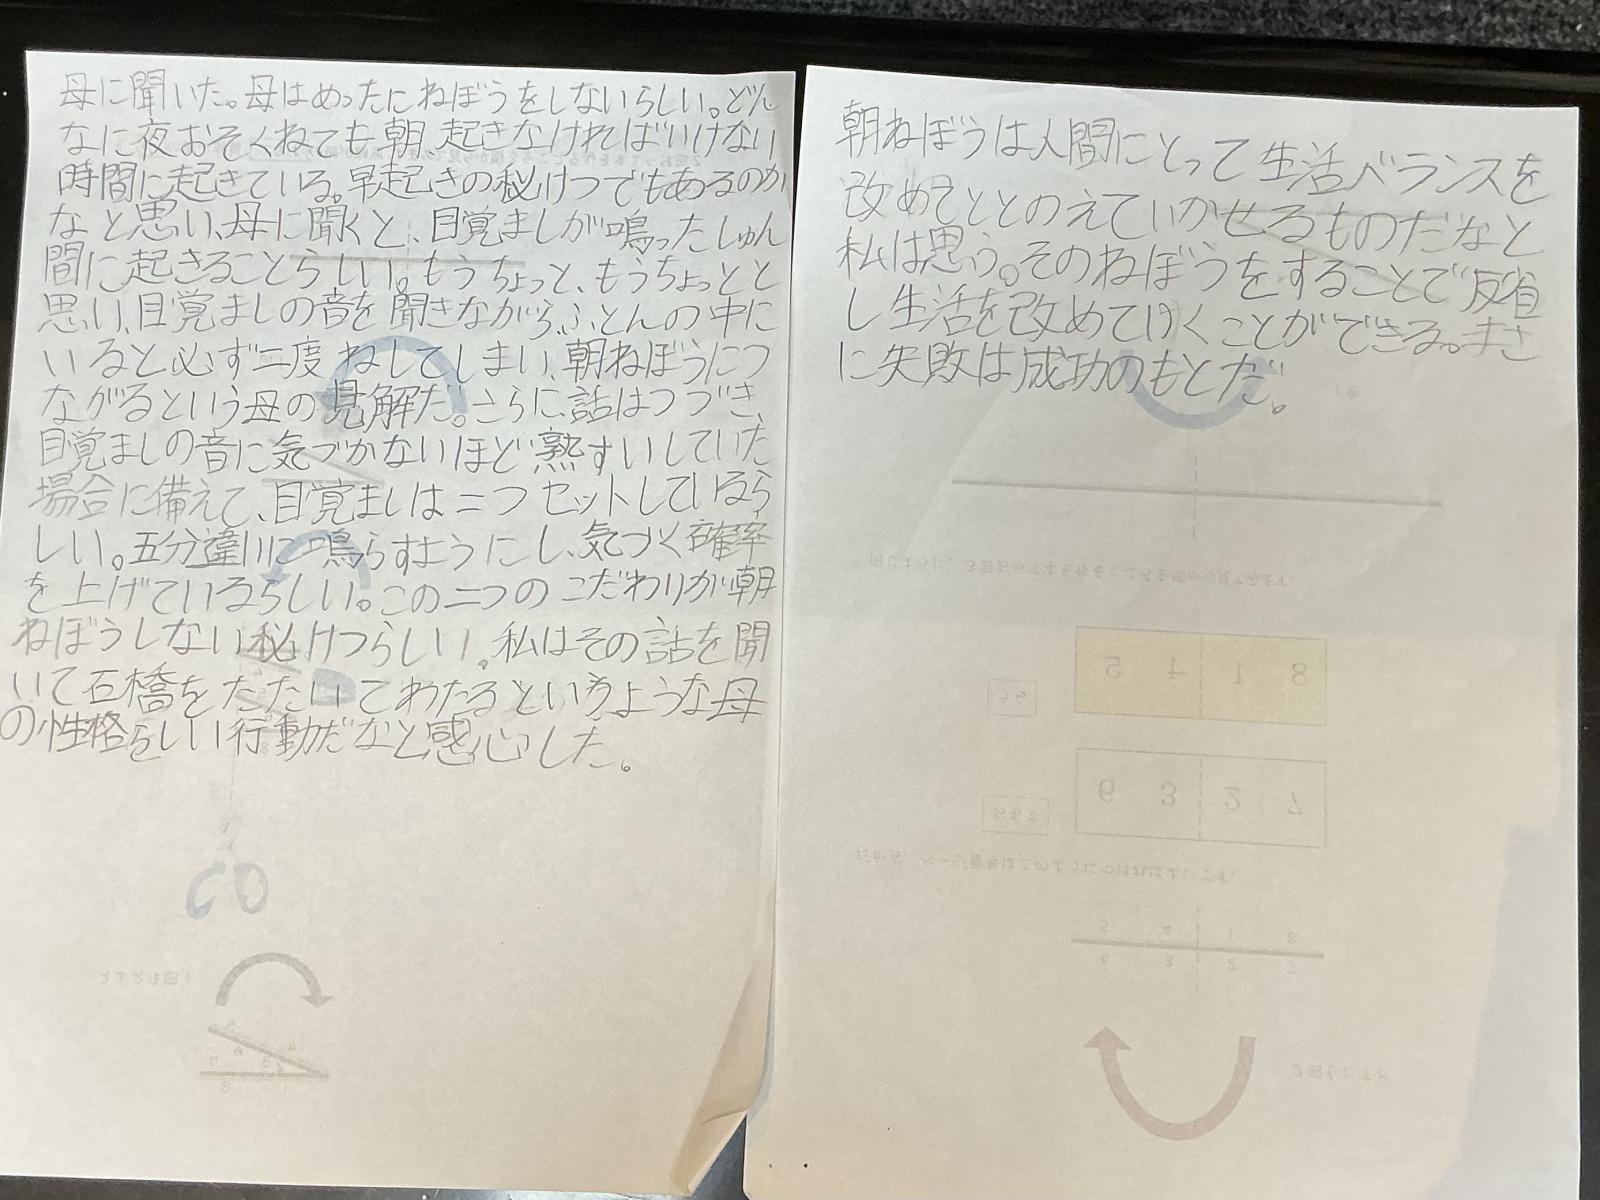 母に聞いた。母はめったにねぼうをしないらしい。どん
なに夜おそくねても朝、起きなければいけない
時間に起きている。早起きの秘けつでもあるのか
なと思い、母に聞くと、目覚ましが鳴ったしゅん
間に起きることらしい。もうちょっと、もうちょっとと
思い、目覚ましの音を聞きながらふとんの中に
いると必ず二度ねしてしまい、朝ねぼうにつ
ながるという母の見解だ。さらに、話はつづき、
目覚ましの音に気づかないほど熟すいしていた
場合に備えて、目覚ましは二つセットしているら
しい。五分違いに鳴らすようにし、気づく確率
を上げているらしい。この二つのこだわりが朝
ねぼうしない秘けつらしい。私はその話を聞
いて石橋をたたいてわたるというような母
の性格らしい行動だなと感心した。
朝ねぼうは人間にとって生活バランスを
改めてととのえていかせるものだなと
私は思う。そのねぼうをすることで反省
し生活を改めていくことができる。まさ
に失敗は成功のもとだ。
8 1 4 5
7 2 3 6
1回もどすと